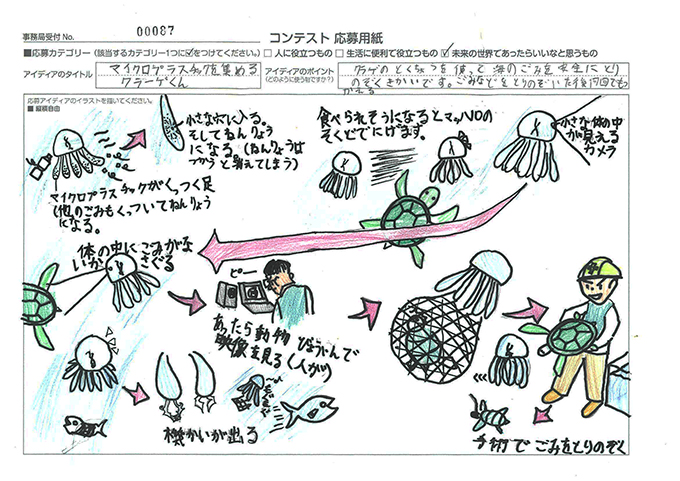 事務局受付 No.
00087
コンテスト 応募用紙
■応募カテゴリー(該当するカテゴリー1つに☑をつけてください。) □ 人に役立つもの □ 生活に便利で役立つもの ☑ 未来の世界であったらいいなと思うもの
アイディアのタイトル
マイクロプラスチックを集める
クラーゲくん
アイディアのポイント
(どのように使う物ですか?)
クラゲのとくちょうを使って海のごみを安全にとり
のぞくきかいです。ごみなどをとりのぞいた後何回でも
つかえる
応募アイディアのイラストを描いてください。
■ 縦横自由
小さなあなに入る。
そしてねんりょう
になる(ねんりょうは
つかうと消えてしまう)
マイクロプラスチックがくっつく足
(他のごみもくっついてねんりょう
になる。
食べられそうになるとマッハ10の
そくどでにげます。
小さな体の中
が見える
カメラ
体の中にごみがな
いかさぐる
ピー
あったら動物びょういんで
映像を見る(人が)
機かいが出る
手術でごみをとりのぞく